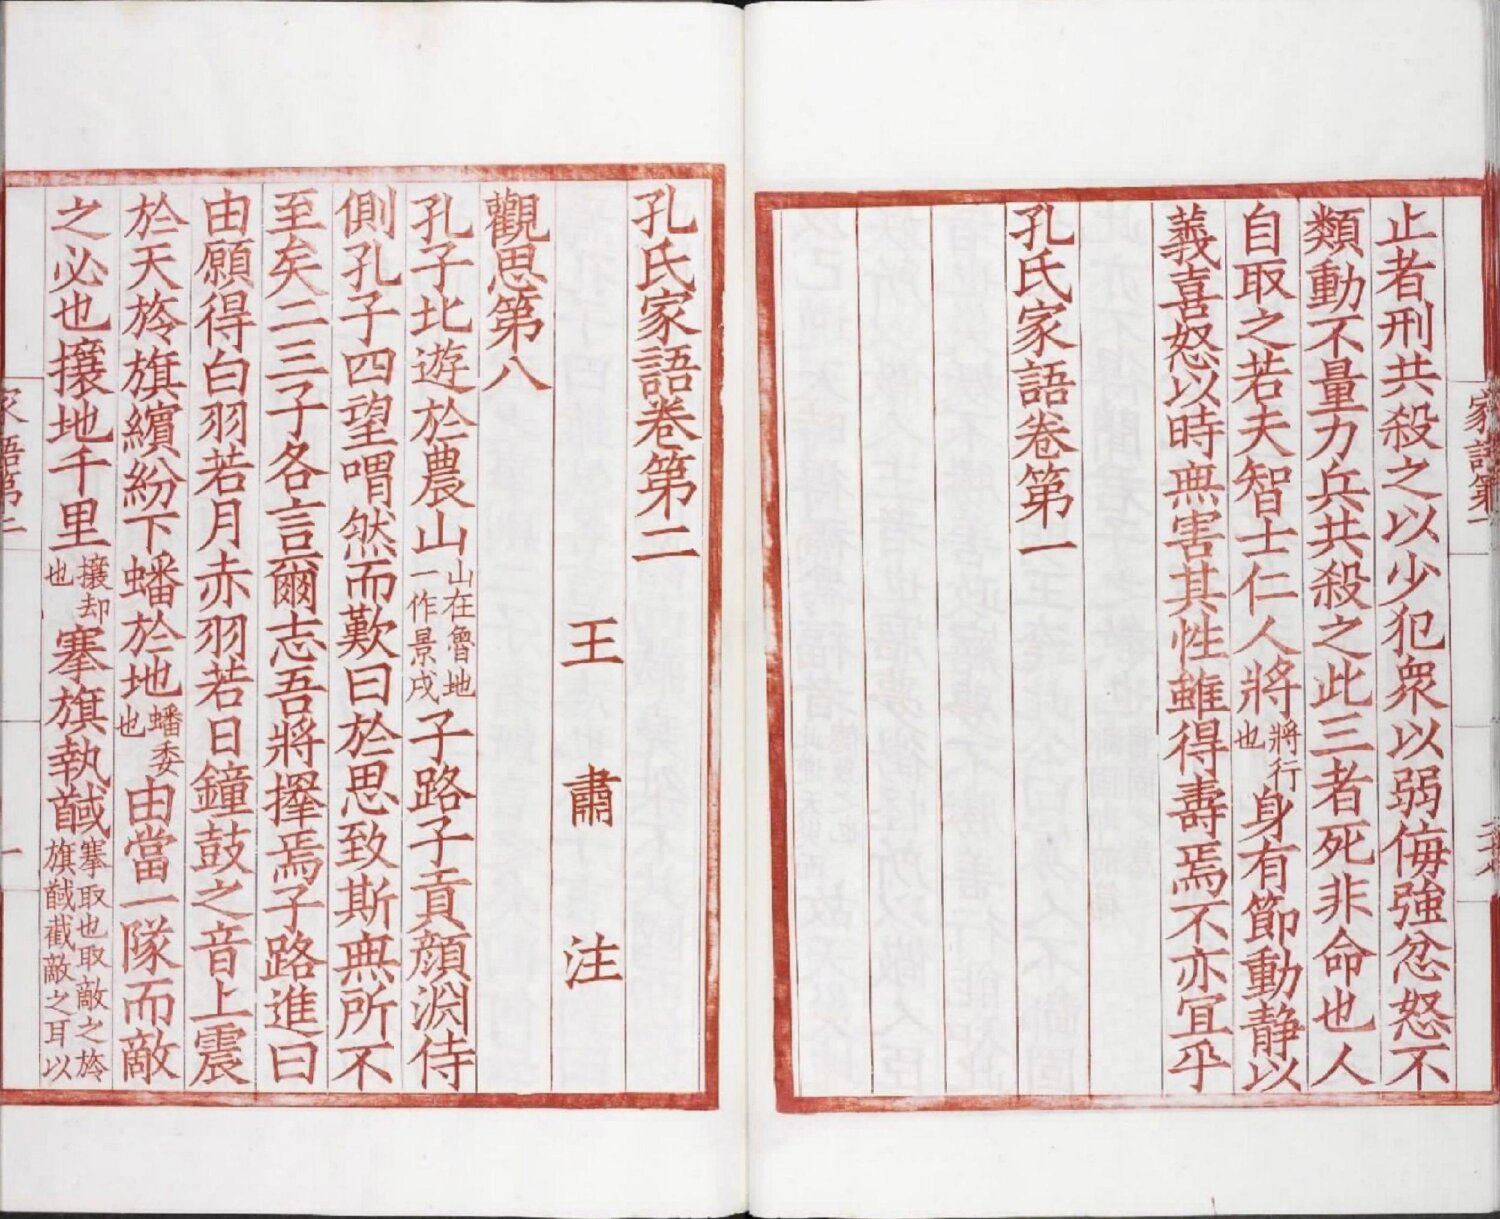 止者刑共殺之以少犯衆以弱侮強忿怒不
類動不量力兵共殺之此三者死非命也人
自取之若夫智士仁人將將行也身有節動静以
義喜怒以時無害其性雖得壽焉不亦宜乎
孔氏家語卷第一
孔氏家語卷第二
王肅注
觀思第八
孔子北遊於農山山在魯地一作景戌子路子貢顔淵侍
側孔子四望喟然而歎曰於思致斯無所不
至矣二三子各言爾志吾將擇焉子路進曰
由願得白羽若月赤羽若日鐘鼓之音上震
於天旍旗繽紛下蟠於地蟠委也由當一隊而敵
之必也攘地千里攘却也搴旗執馘搴取也取敵之旍旗馘截敵之耳以